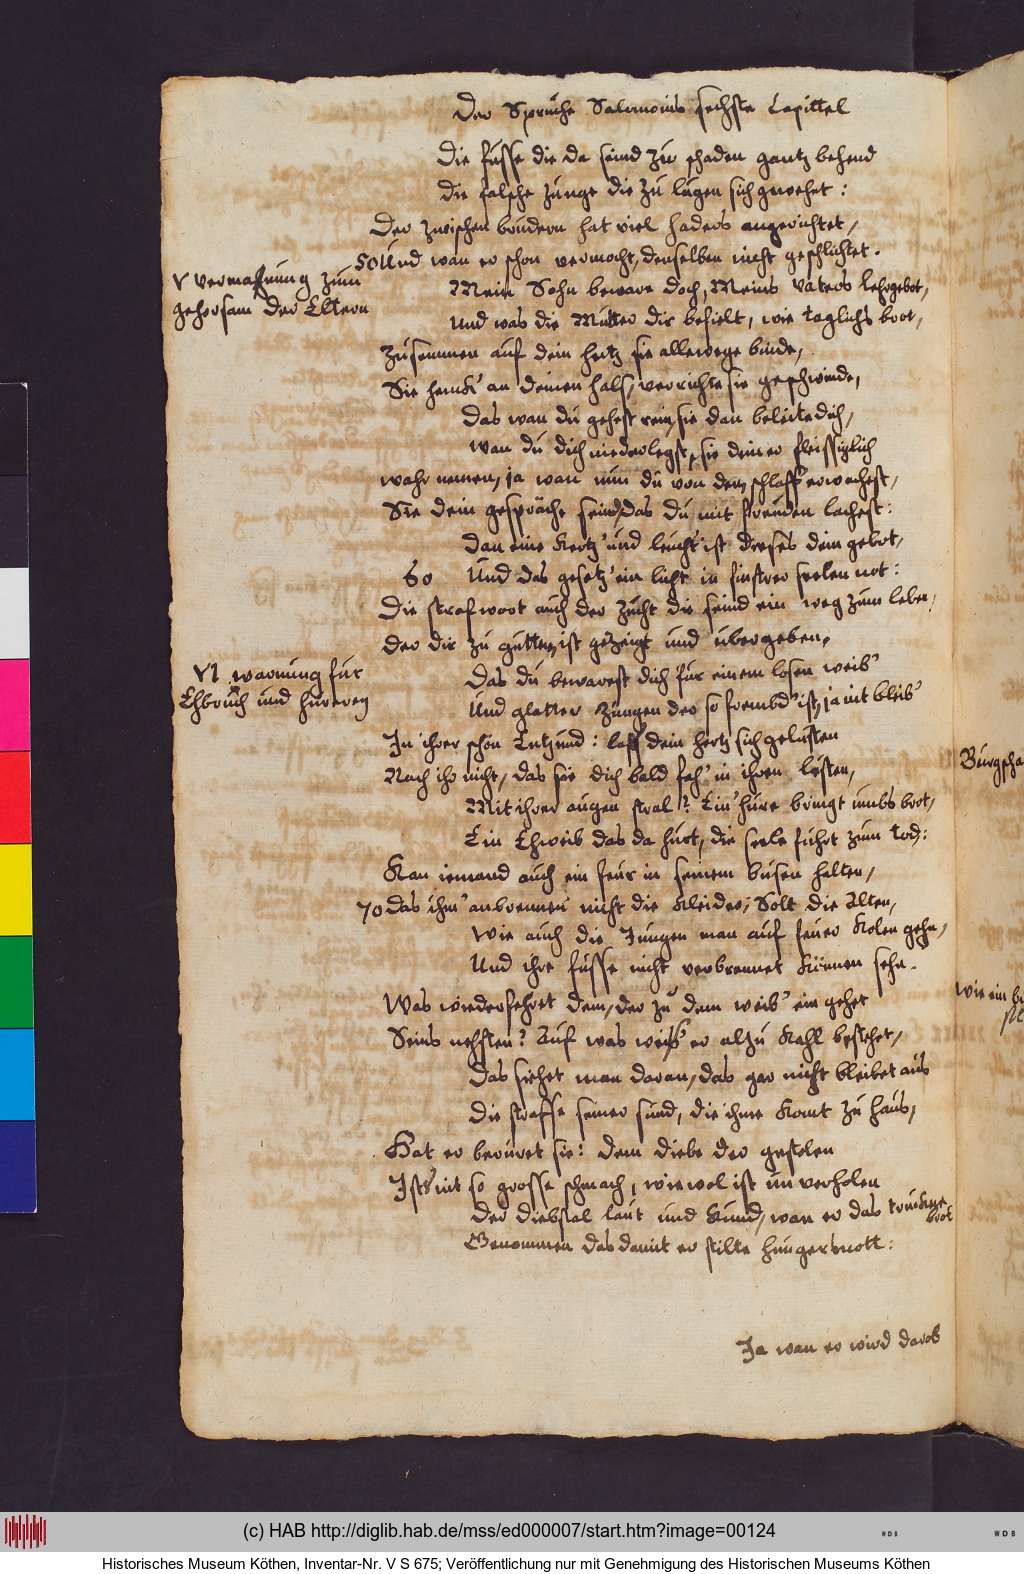 Der Sprüche Salomonis sechste Capittel
Die füsse die da seind zu schaden gantz behend
die falsche zunge die zu lügen sich gewehnt:
Der zwischen brüdern hat viel haders angerichtet,
50 Und wan er schon vermocht, denselben nicht geschlichtet.
V vermahnung zum
gehorsam der Eltern
Mein Sohn beware doch, Meins vaters lehrgebot,
Und was die Mutter dir befielt, wie taglichs brot,
Zusammen auf dein hertz sie allewege binde,
Sie henk' an deinen hals, verrichte sie geschwinde,
Das wan du gehest rein, sie dan beleite dich,
wan du dich niederlegst, sie deiner fleissiglich
wahr nemen, ja wan nun du von dem schlaff erwachest,
Sie dein gespräche seind, das du mit freuden lachest:
Dan eine Kertz' und leucht' ist dieses dein gebot,
60 Und das gesetz' ein licht in finstrer seelen not:
Die strafwort auch der zucht die seind ein weg zum leben,
der dir zu gutten, ist gezeigt und übergeben.
VI warnung für
Ehbruch und hurerey
Das du bewarest dich für einem losen weib'
Und glatter Zungen der so frembd' ist, ja nit bleib'
In ihrer schön Entzünd: lass dein hertz sich gelüsten
Nach ihr nicht, das sie dich bald fah' in ihren lüsten,
Mit ihrer augen stral? Ein' hure bringt umbs brot,
Ein Ehweib das da hurt, die seele führt zum tod:
Kan iemand auch ein feur in seinem busen halten,
70 das ihm' anbrennen nicht die Kleider; Solt die Alten,
Wie auch die Jungen man auf feuer Kolen gehn,
Und ihre füsse nicht verbrennet Können sehn.
Was wiederfehret dem, der zu dem weib' ein gehet
Seins nehsten? Auf was weiss' er alzu Kahl bestehet,
Das siehet man daran, das gar nicht bleibet aus
die straffe seiner sünd, die ihme Komt zu haus,
Hat er berüret sie: dem diebe der gestolen
Ists nit so grosse schmach, wiewol ist unverholen
der diebstal laut und Kund, wan er das truckene
brot
Genommen das damit er stilte hungersnott:
Ja wan er wird darob
Burgscha
wie ein
(c) HAB http://diglib.hab.de/mss/ed000007/start.htm?image=00124
WDB
WDB
Historisches Museum Köthen, Inventar-Nr. V S 675; Veröffentlichung nur mit Genehmigung des Historischen Museums Köthen